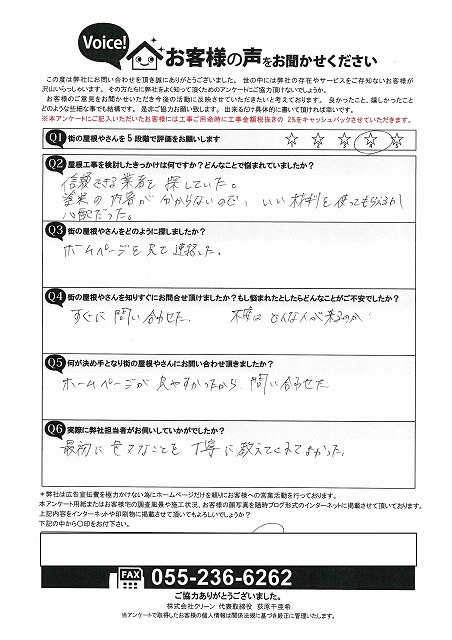 Voice!
お客様の声をお聞かせください
この度は弊社にお問い合わせを頂き誠にありがとうございました。世の中には弊社の存在やサービスをご存知ないお客様が
沢山いらっしゃいます。その方たちに弊社をよく知って頂くためのアンケートにご協力頂けないでしょうか。
お客様のご意見をお聞かせいただき今後の活動に反映させていただきたいと考えております。良かったこと、嬉しかったこと
どのような些細な事でも結構です。是非ご協力お願い致します。出来るだけ具体的に書いて頂ければ幸いです。
※本アンケートにご記入いただいたお客様には工事ご用命時に工事金額税抜きの 2%をキャッシュバックさせていただきます。
Q1 街の屋根やさんを5段階で評価をお願いします ☆ ☆ ☆ ☆ ☆
Q2 屋根工事を検討したきっかけは何ですか?どんなことで悩まれていましたか?
信頼できる業者を探していた。
塗装の内容が分からないので、いい材料を使ってもらえるか
心配だった。
Q3 街の屋根やさんをどのように探しましたか?
ホームページを見て連絡した。
Q4 街の屋根やさんを知りすぐにお問合せ頂けましたか?もし悩まれたとしたらどんなことがご不安でしたか?
すぐに問い合わせた。 不安は どんな人が来るのか
Q5 何が決め手となり街の屋根やさんにお問い合わせ頂けましたか?
ホームページが見やすかったから 問い合わせた.
Q6 実際に弊社担当者がお伺いしていかがでしたか?
最初に なことを 丁寧に教えてくれてよかった。
＊弊社は広告宣伝費を極力かけない為にホームページだけを頼りにお客様への営業活動を行っております。
本アンケート用紙またはお客様宅の調査風景や施工状況、お客様の顔写真を随時ブログ形式のインターネットに掲載させて頂いております。
上記内容をインターネットや印刷物に掲載させて頂いてもよろしいでしょうか?
下記の中から〇印をお付下さい。
FAX 055-236-6262
ご協力ありがとうございました。
株式会社クリーン 代表取締役 荻原千亜希
当アンケートで取得したお客様の個人情報は関係法規に基づき厳正に管理いたします。